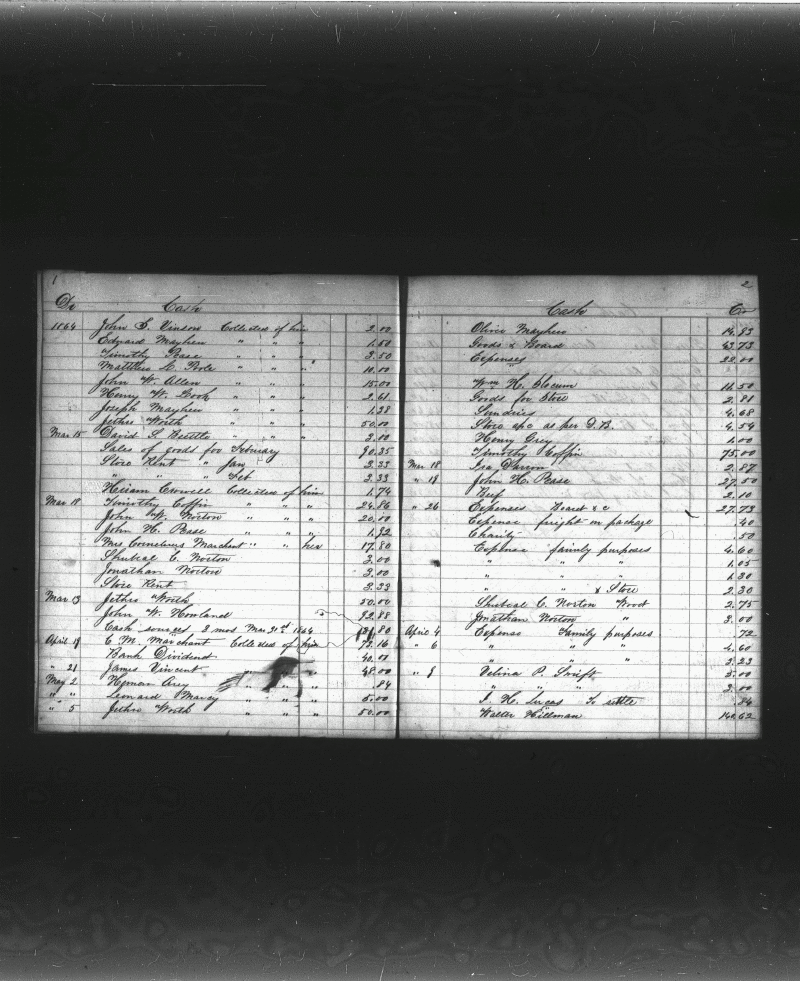 1
Dr Cash
1864 John S. Vinson Collected of him 2.00
Edward Mayhew " " " 1.50
Timothy Pease " " " 3.50
Matthew " " " 10.00
John W. Allen " " " 15.00
Henry W. " " " 2.61
Joseph Mayhew " " " 1.28
Jethro Worth " " " 50.00
Mar 15 David G. " " " 2.00
Sales of goods for February 90.35
Store Rent " Jan 3.33
" " " Feb 3.33
Hiram Crowell Collected of him 1.74
Mar 18 Timothy Coffin " " " 24.86
John W. Norton " " " 20.00
John H. Pease " " " 1.92
Mrs Cornelius Marchant " " her 17.80
Shubeal C. Norton 3.00
Jonathan Norton 3.00
Store Rent 3.33
Mar 13 Jethro Worth 50.00
John W. Howland 92.88
Cash 3 mos Mar 31st 1864 131.80
April 19 C. M. Marchant Collected of him 73.16
Bank Dividend 40.00
" 21 James Vincent " " " 48.00
May 2 Hyman Arey " " " .84
" " Leonard " " " 5.00
" 5 Jethro Worth " " " 50.00
2
Cash Cr
Olive Mayhew 14.83
Goods & Board 43.73
Expenses 22.00
Wm H. Slocum 11.50
Goods for Store 2.81
Sundries 4.68
Store a/c as per D.B. 4.54
Henry Grey 1.00
Timothy Coffin 75.00
Mar 18 Ira Darrow 2.87
" 19 John H. Pease 27.50
Beef 2.10
" 26 Expenses &c 27.73
Expense freight on package .40
Charity .50
Expense family purposes 4.60
" " " 1.05
" " " 1.30
" " & Store 2.30
Shubeal C. Norton Wood 2.75
Jonathan Norton " 3.00
April 4 Expense Family purposes 1.72
" 6 " " " 4.60
" " " 3.23
" 9 Velina P. Swift 5.00
" " " 3.00
J. H. Lucas To settle .84
Walter Hillman 140.62